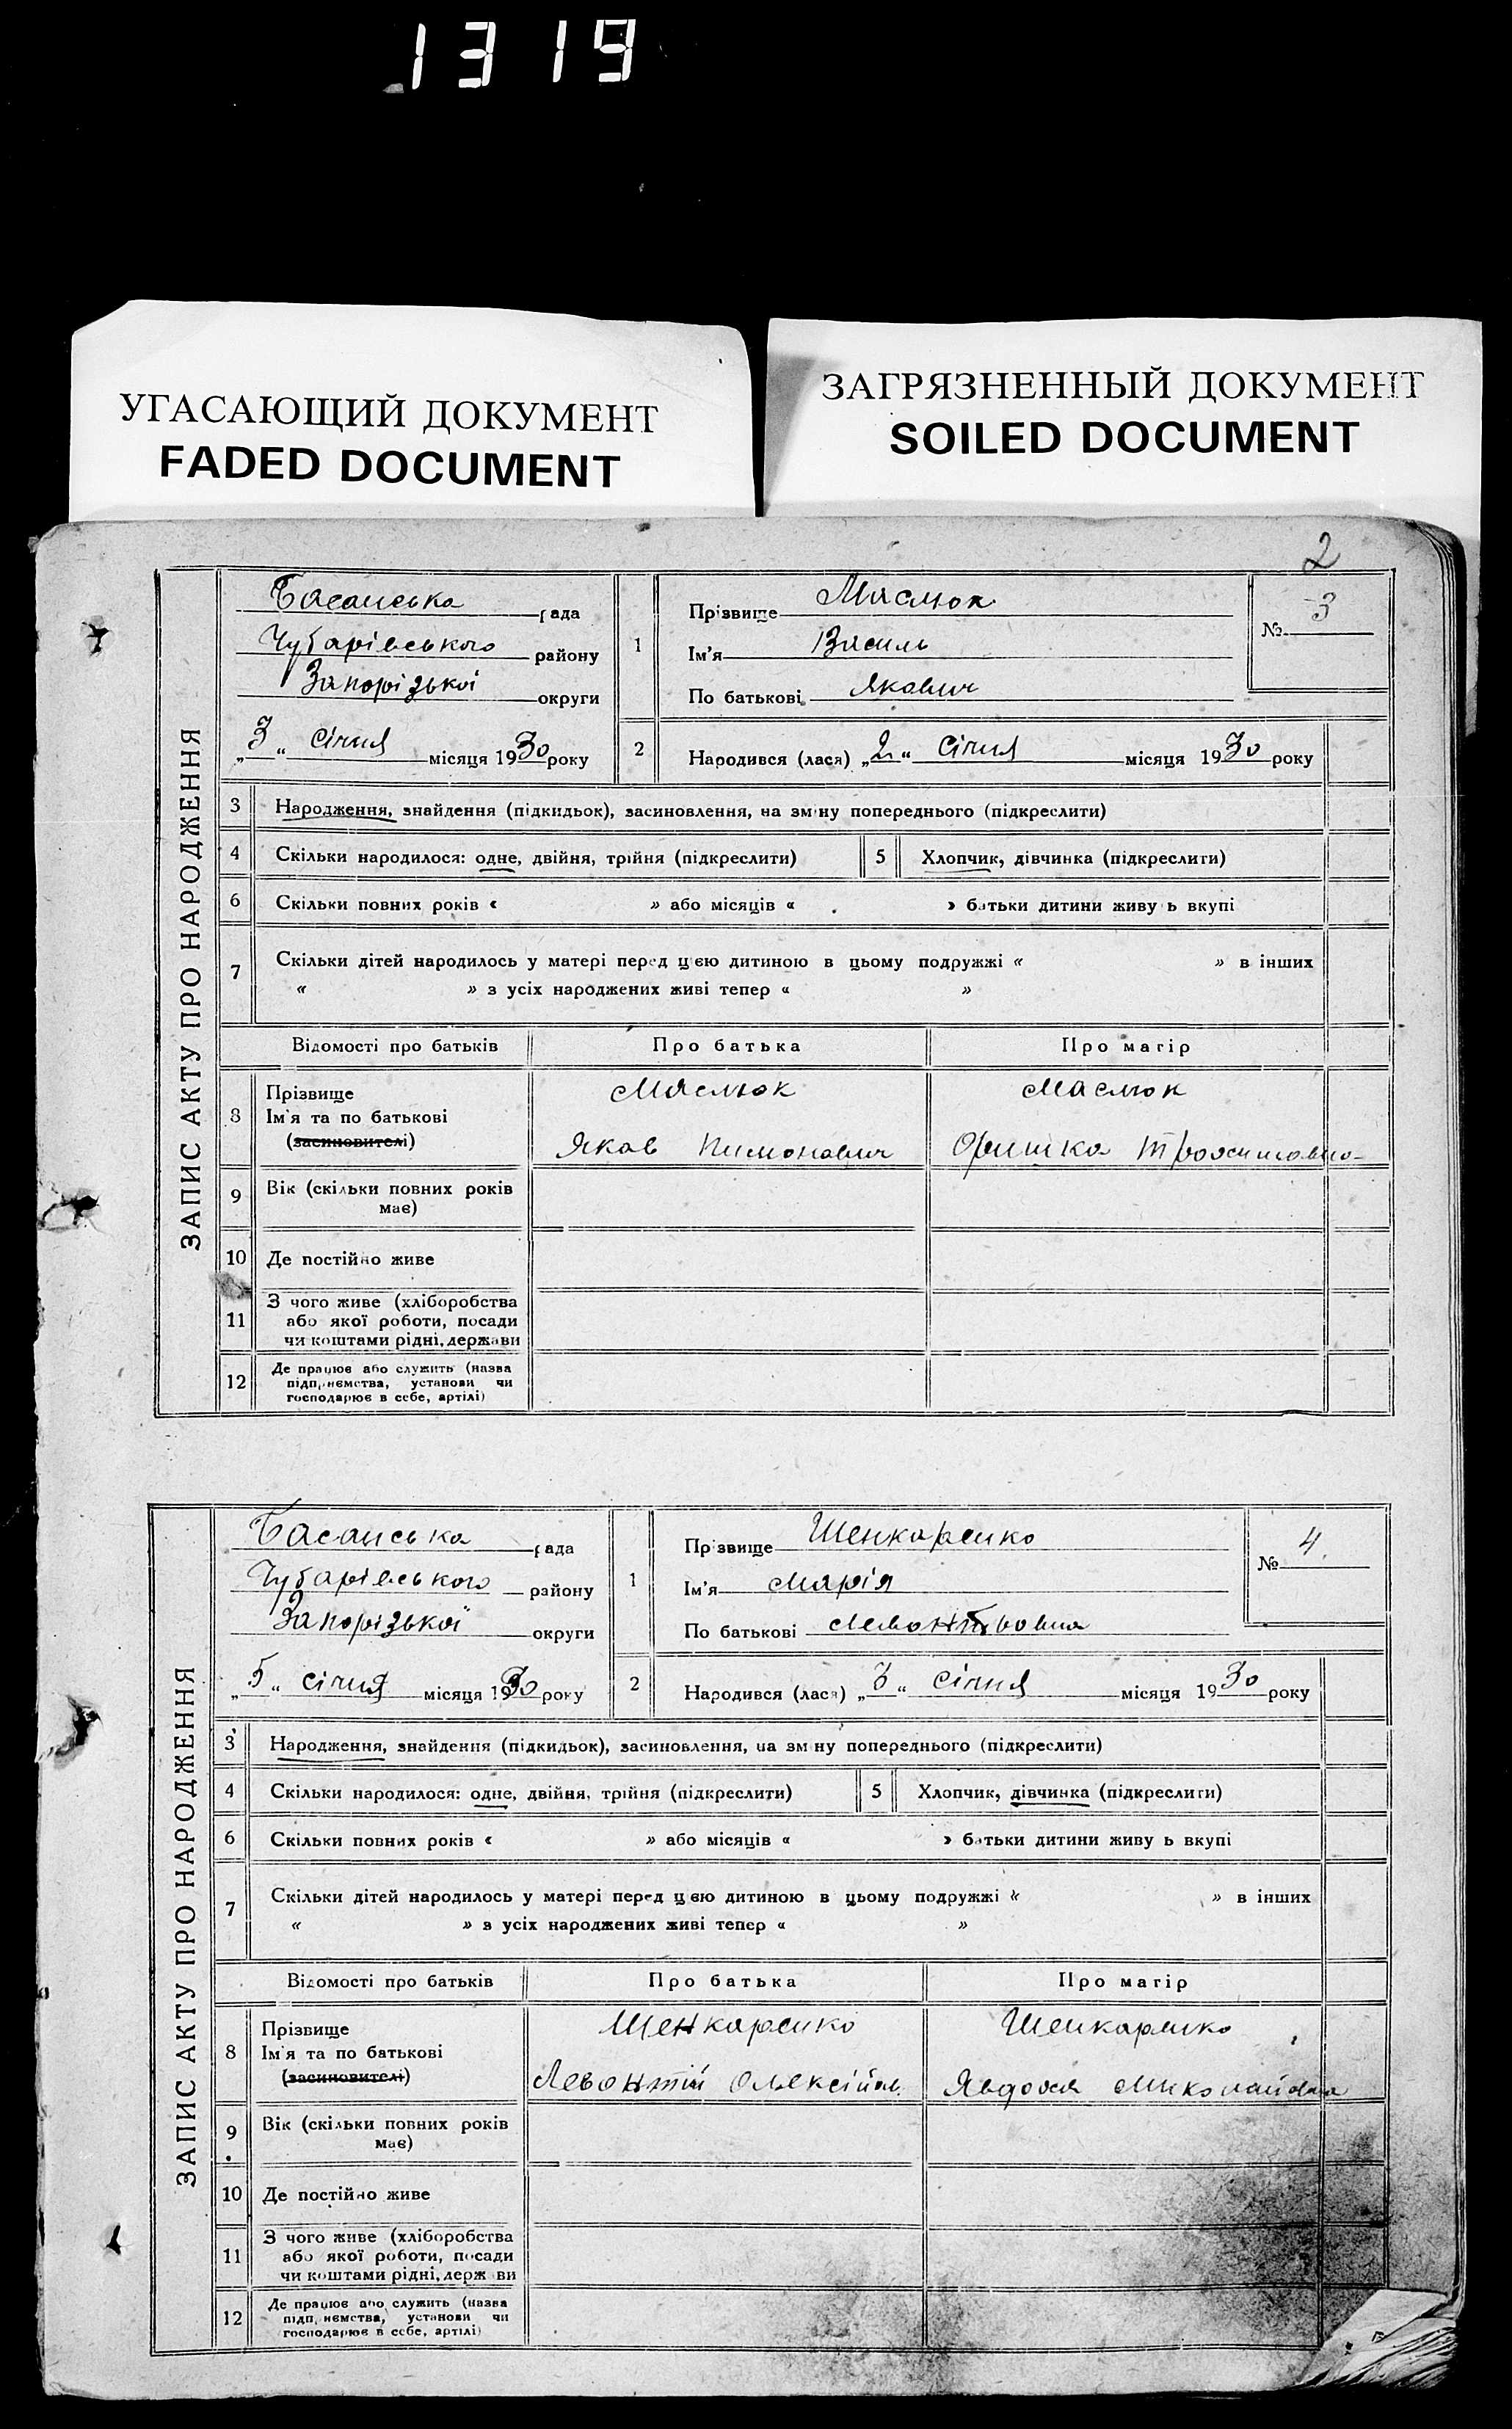 1319
УГАСАЮЩИЙ ДОКУМЕНТ
FADED DOCUMENT
ЗАГРЯЗНЕННЫЙ ДОКУМЕНТ
SOILED DOCUMENT
2
ЗАПИС АКТУ ПРО НАРОДЖЕННЯ
Басанська рада
Чубарівського району
Запорізької округи
„3“ січня місяця 1930 року
1
Прізвище Маслюк
Ім'я Василь
По батькові Якович
№ 3
2 Народився (лася) „2“ січня місяця 1930 року
3 Народження, знайдення (підкидьок), засиновлення, на зміну попереднього (підкреслити)
4 Скільки народилося: одне, двійня, трійня (підкреслити) 5 Хлопчик, дівчинка (підкреслити)
6 Скільки повних років « » або місяців « » батьки дитини живуть вкупі
7 Скільки дітей народилось у матері перед цією дитиною в цьому подружжі « » в інших
« » з усіх народжених живі тепер « »
Відомості про батьків Про батька Про матір
8 Прізвище Маслюк Маслюк
Ім'я та по батькові
(засиновителі) Яков Пимонович Оришка
9 Вік (скільки повних років
має)
10 Де постійно живе
11 З чого живе (хліборобства
або якої роботи, посади
чи коштами рідні, держави
12 Де працює або служить (назва
підприємства, установи чи
господарює в себе, артілі)
ЗАПИС АКТУ ПРО НАРОДЖЕННЯ
Басанська рада
Чубарівського району
Запорізької округи
„5“ січня місяця 1930 року
1
Прізвище Шенкаренко
Ім'я Марія
По батькові
№ 4
2 Народився (лася) „3“ січня місяця 1930 року
3 Народження, знайдення (підкидьок), засиновлення, на зміну попереднього (підкреслити)
4 Скільки народилося: одне, двійня, трійня (підкреслити) 5 Хлопчик, дівчинка (підкреслити)
6 Скільки повних років « » або місяців « » батьки дитини живуть вкупі
7 Скільки дітей народилось у матері перед цією дитиною в цьому подружжі « » в інших
« » з усіх народжених живі тепер « »
Відомості про батьків Про батька Про матір
8 Прізвище Шенкаренко Шенкаренко
Ім'я та по батькові
(засиновителі) Левонтій Олексійов. Явдоха Миколаївна
9 Вік (скільки повних років
має)
10 Де постійно живе
11 З чого живе (хліборобства
або якої роботи, посади
чи коштами рідні, держави
12 Де працює або служить (назва
підприємства, установи чи
господарює в себе, артілі)